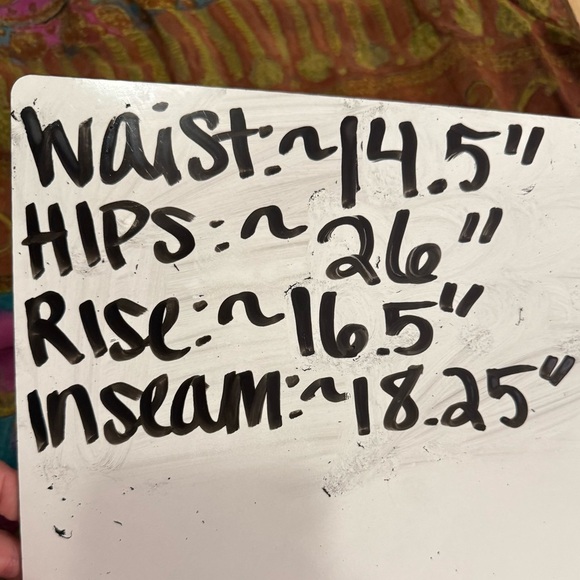 Waist: ~14.5"
HIPS: ~ 26"
RISe: ~16.5"
Inseam: ~18.25"